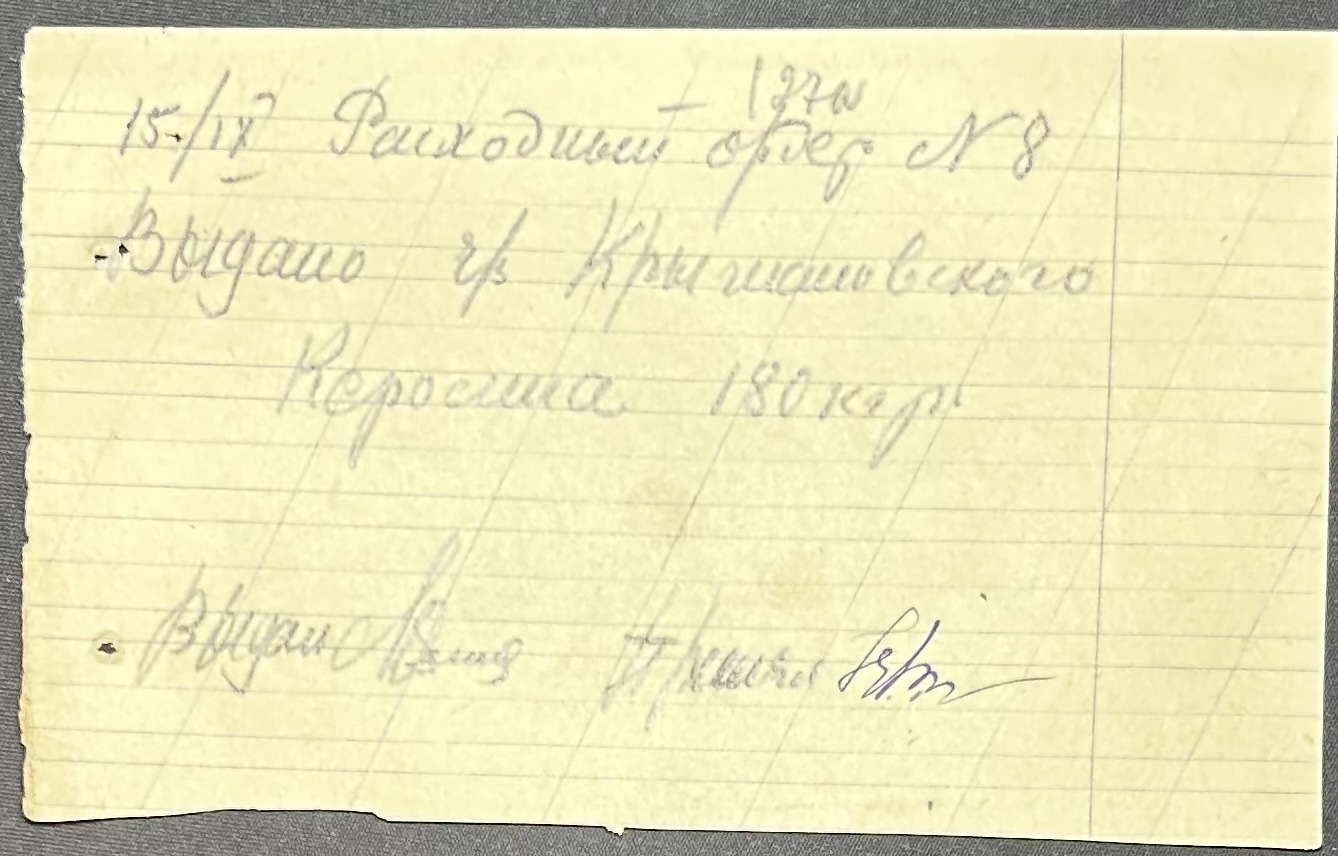 15/IX Расходный ордер N 8
Выдано ч/з Крыжановского
Керосина 180 кгр
Выдал Принял